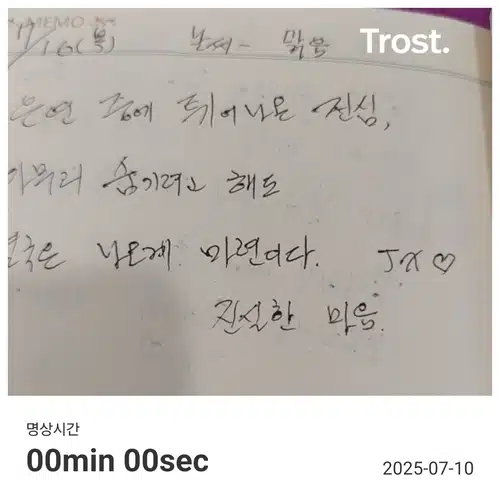 MEMO
11/16(목) 날씨- 맑음
Trost.
은연 중에 튀어나온 진심,
아무리 숨기려고 해도
결국은 나오게 마련이다. Jx♡
진실한 마음.
명상시간
00min 00sec
2025-07-10